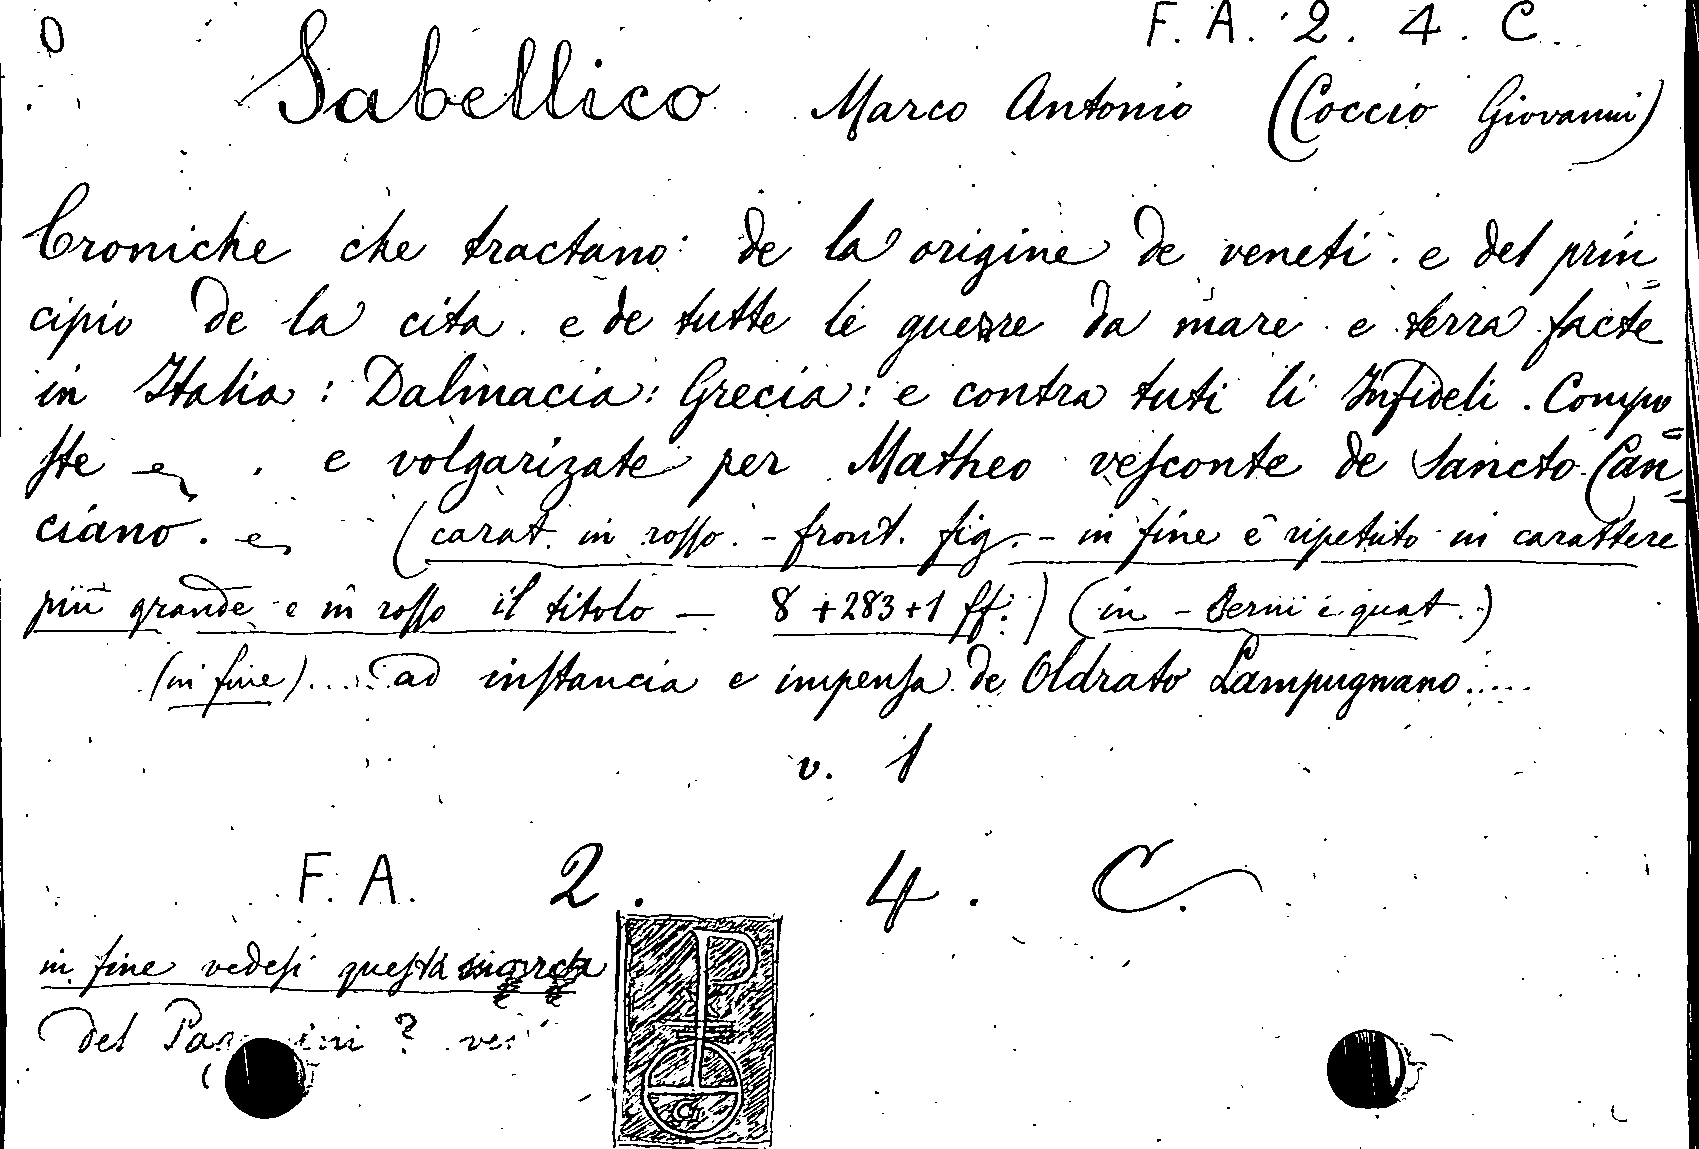 F. A. 2. 4. C.
Sabellico Marco Antonio (Coccio Giovanni)
Croniche che tractano: de la origine de veneti. e del prin=
cipio de la cita. e de tutte le guerre da mare e terra facte
in Italia: Dalmacia: Grecia: e contra tuti li Infideli. Compo=
ste e . e volgarizate per Matheo vesconte de Sancto Can=
ciano. e (carat. in rosso. - front. fig. - in fine è ripetuto in carattere
più grande e in rosso il titolo — 8 + 283 + 1 ff.) (in - terni e quat.)
(in fine) .... ad instancia e impensa de Oldrato Lampugnano .....
v. 1
F. A. 2. 4. C.
in fine vedesi questa
del ?